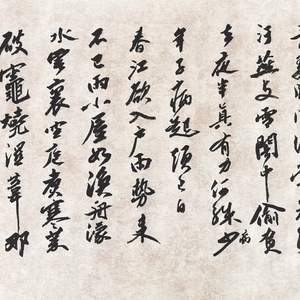 汙燕支雪闇中偷負
去夜半真有力何殊病少
年子病起頭已白
春江欲入戶雨勢來
不已雨小屋如漁舟濛
水雲裏空庖煮寒菜
破竈燒濕葦那